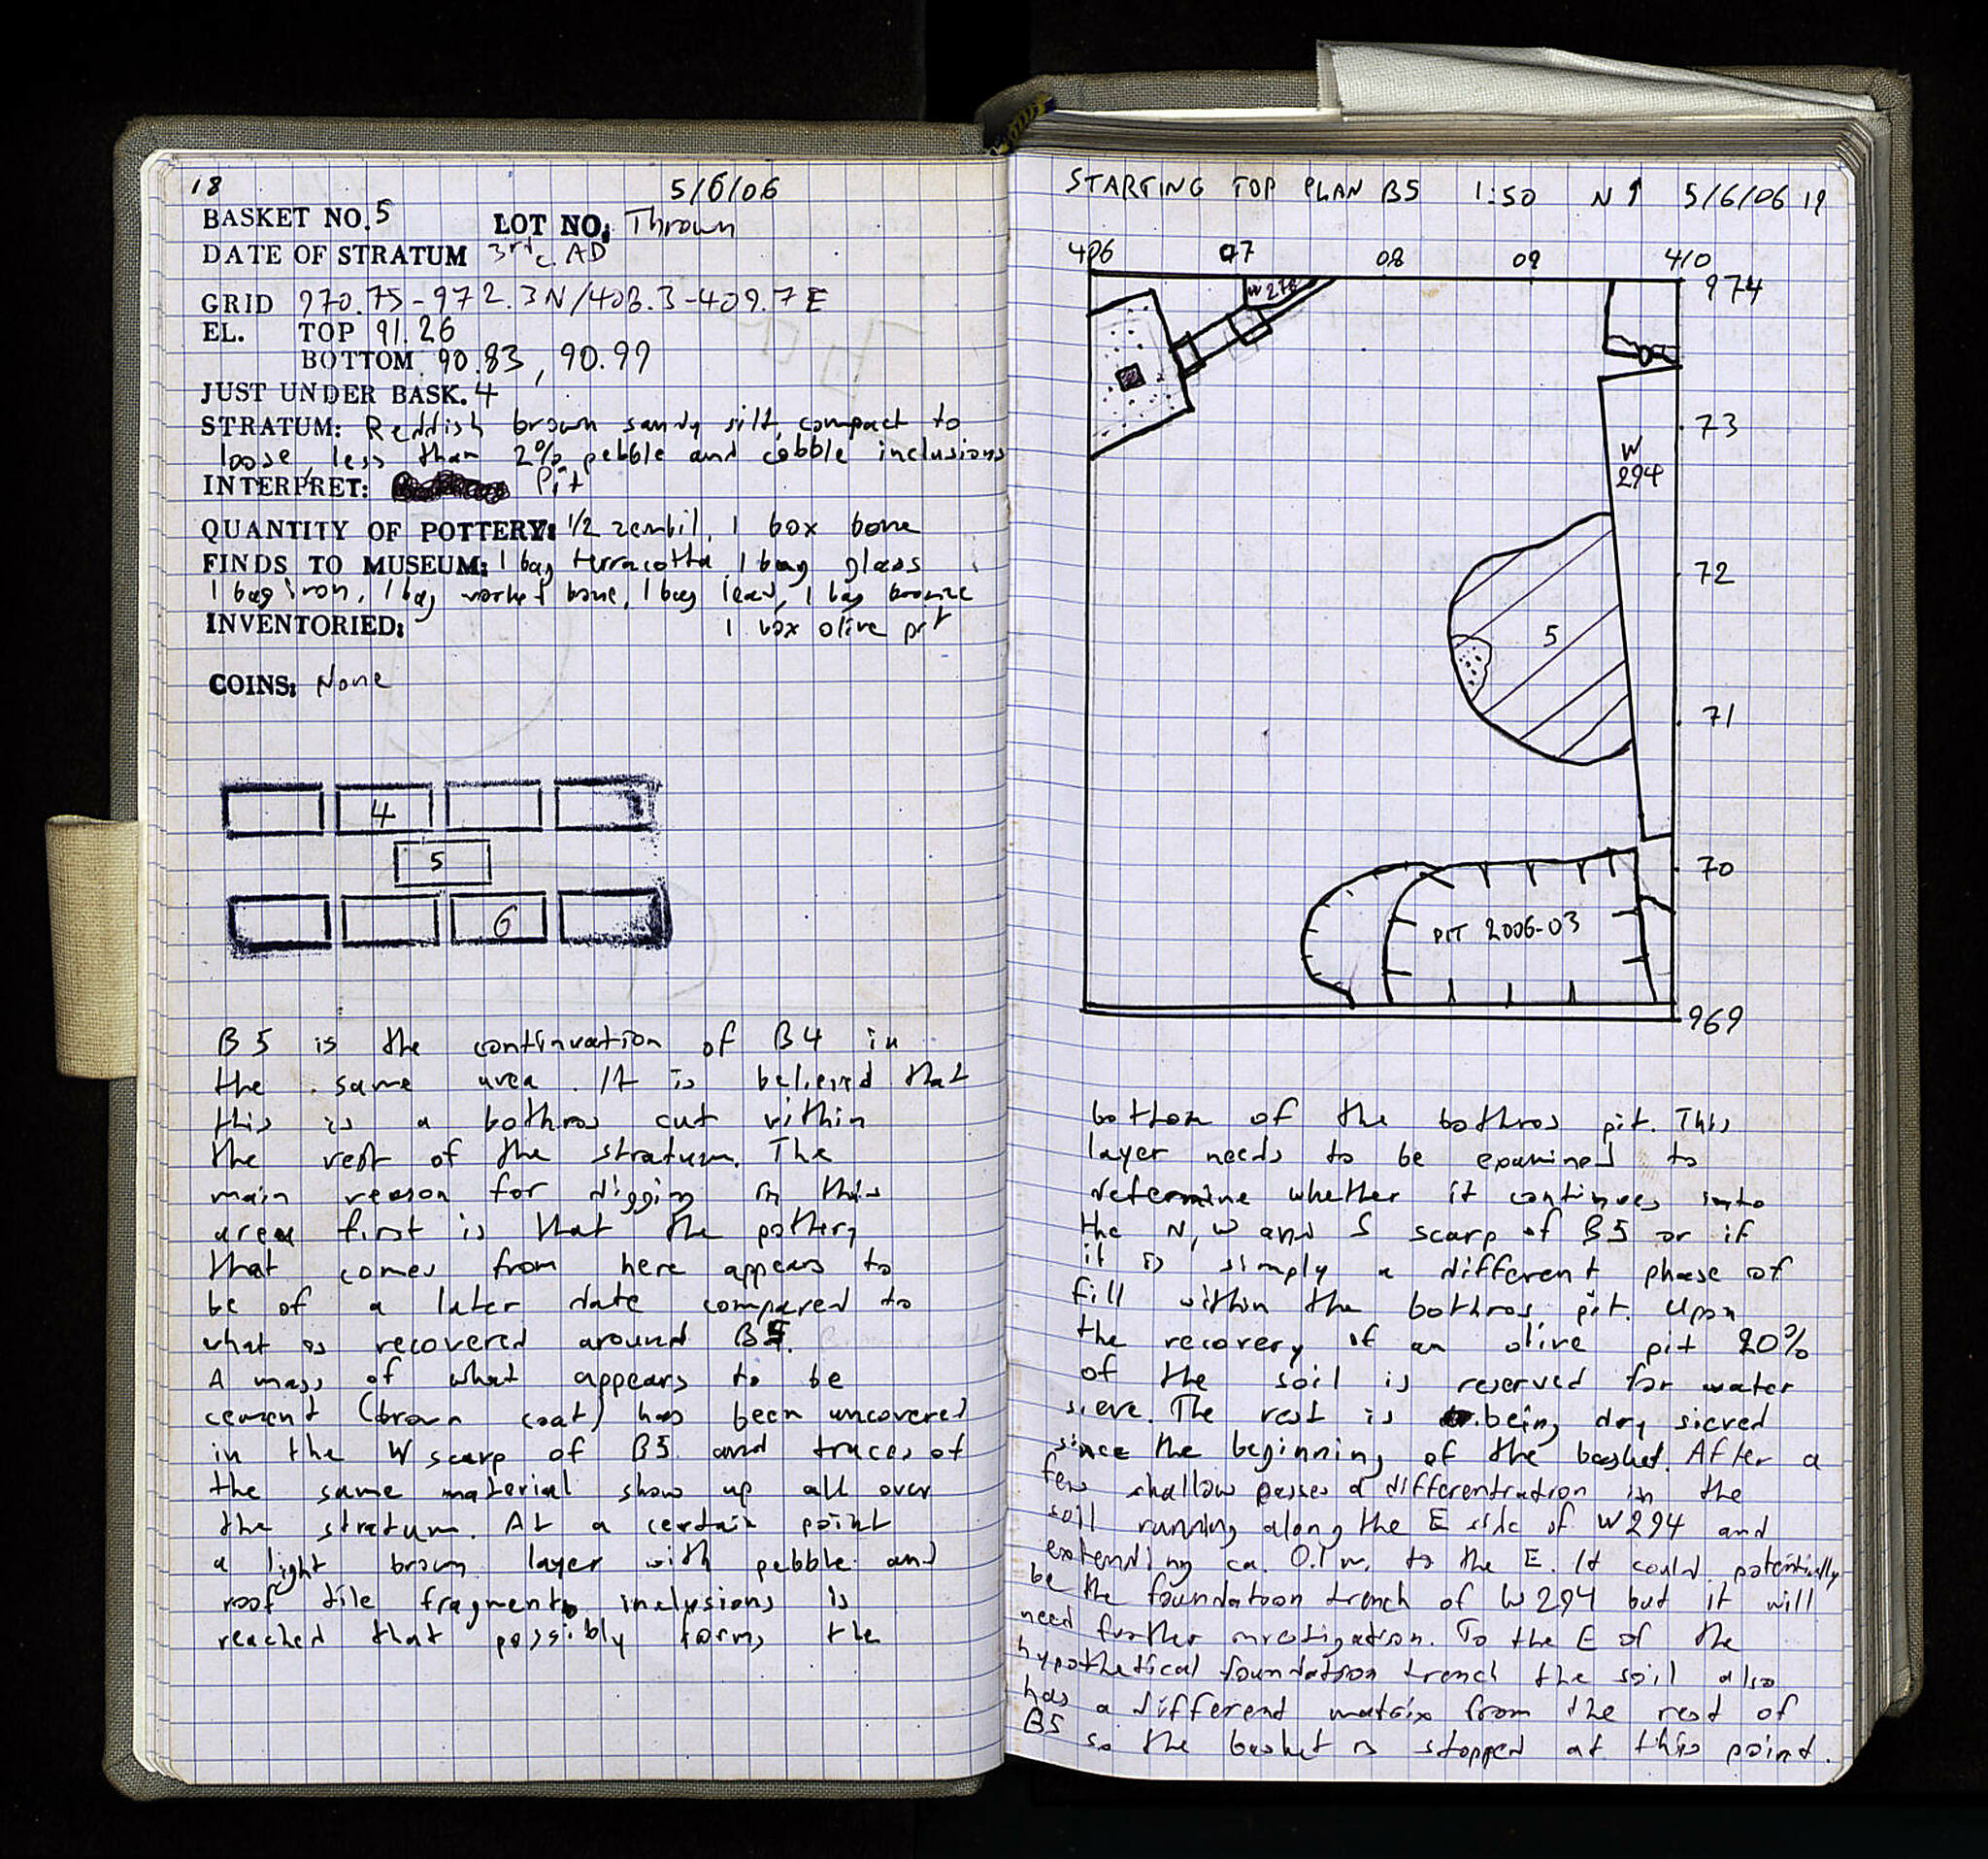 18
5/6/06
BASKET NO. 5 LOT NO: Thrown
DATE OF STRATUM 3rd c. AD
GRID 970.75-972.3N/408.3-409.7E
EL. TOP 91.26
BOTTOM 90.83, 90.99
JUST UNDER BASK. 4
STRATUM: Reddish brown sandy silt, compact to
loose, less than 2% pebble and cobble inclusions
INTERPRET: Pit
QUANTITY OF POTTERY: 1/2 zembil, 1 box bone
FINDS TO MUSEUM: 1 bag terracotta, 1 bag glass
1 bag iron, 1 bag worked bone, 1 bag lead, 1 bag bronze
INVENTORIED: 1 box olive pit
COINS: None
4
5
6
B5 is the continuation of B4 in
the same area. It is believed that
this is a bothros cut within
the rest of the stratum. The
main reason for digging in this
area first is that the pottery
that comes from here appears to
be of a later date compared to
what is recovered around B5.
A mass of what appears to be
cement (brown coat) has been uncovered
in the W scarp of B5 and traces of
the same material show up all over
the stratum. At a certain point
a light brown layer with pebble and
roof tile fragments inclusions is
reached that possibly forms the
STARTING TOP PLAN B5 1:50 N↑ 5/6/06 19
406 07 08 09 410
974
W 278
73
W
294
72
5
71
70
PIT 2006-03
969
bottom of the bothros pit. This
layer needs to be examined to
determine whether it continues into
the N, W and S scarp of B5 or if
it is simply a different phase of
fill within the bothros pit. Upon
the recovery of an olive pit 20%
of the soil is reserved for water
sieve. The rest is being dry sieved
since the beginning of the basket. After a
few shallow passes a differentiation in the
soil running along the E side of W294 and
extending ca. 0.1 m. to the E. It could potentially
be the foundation trench of W294 but it will
need further investigation. To the E of the
hypothetical foundation trench the soil also
has a different matrix from the rest of
B5 so the basket is stopped at this point.